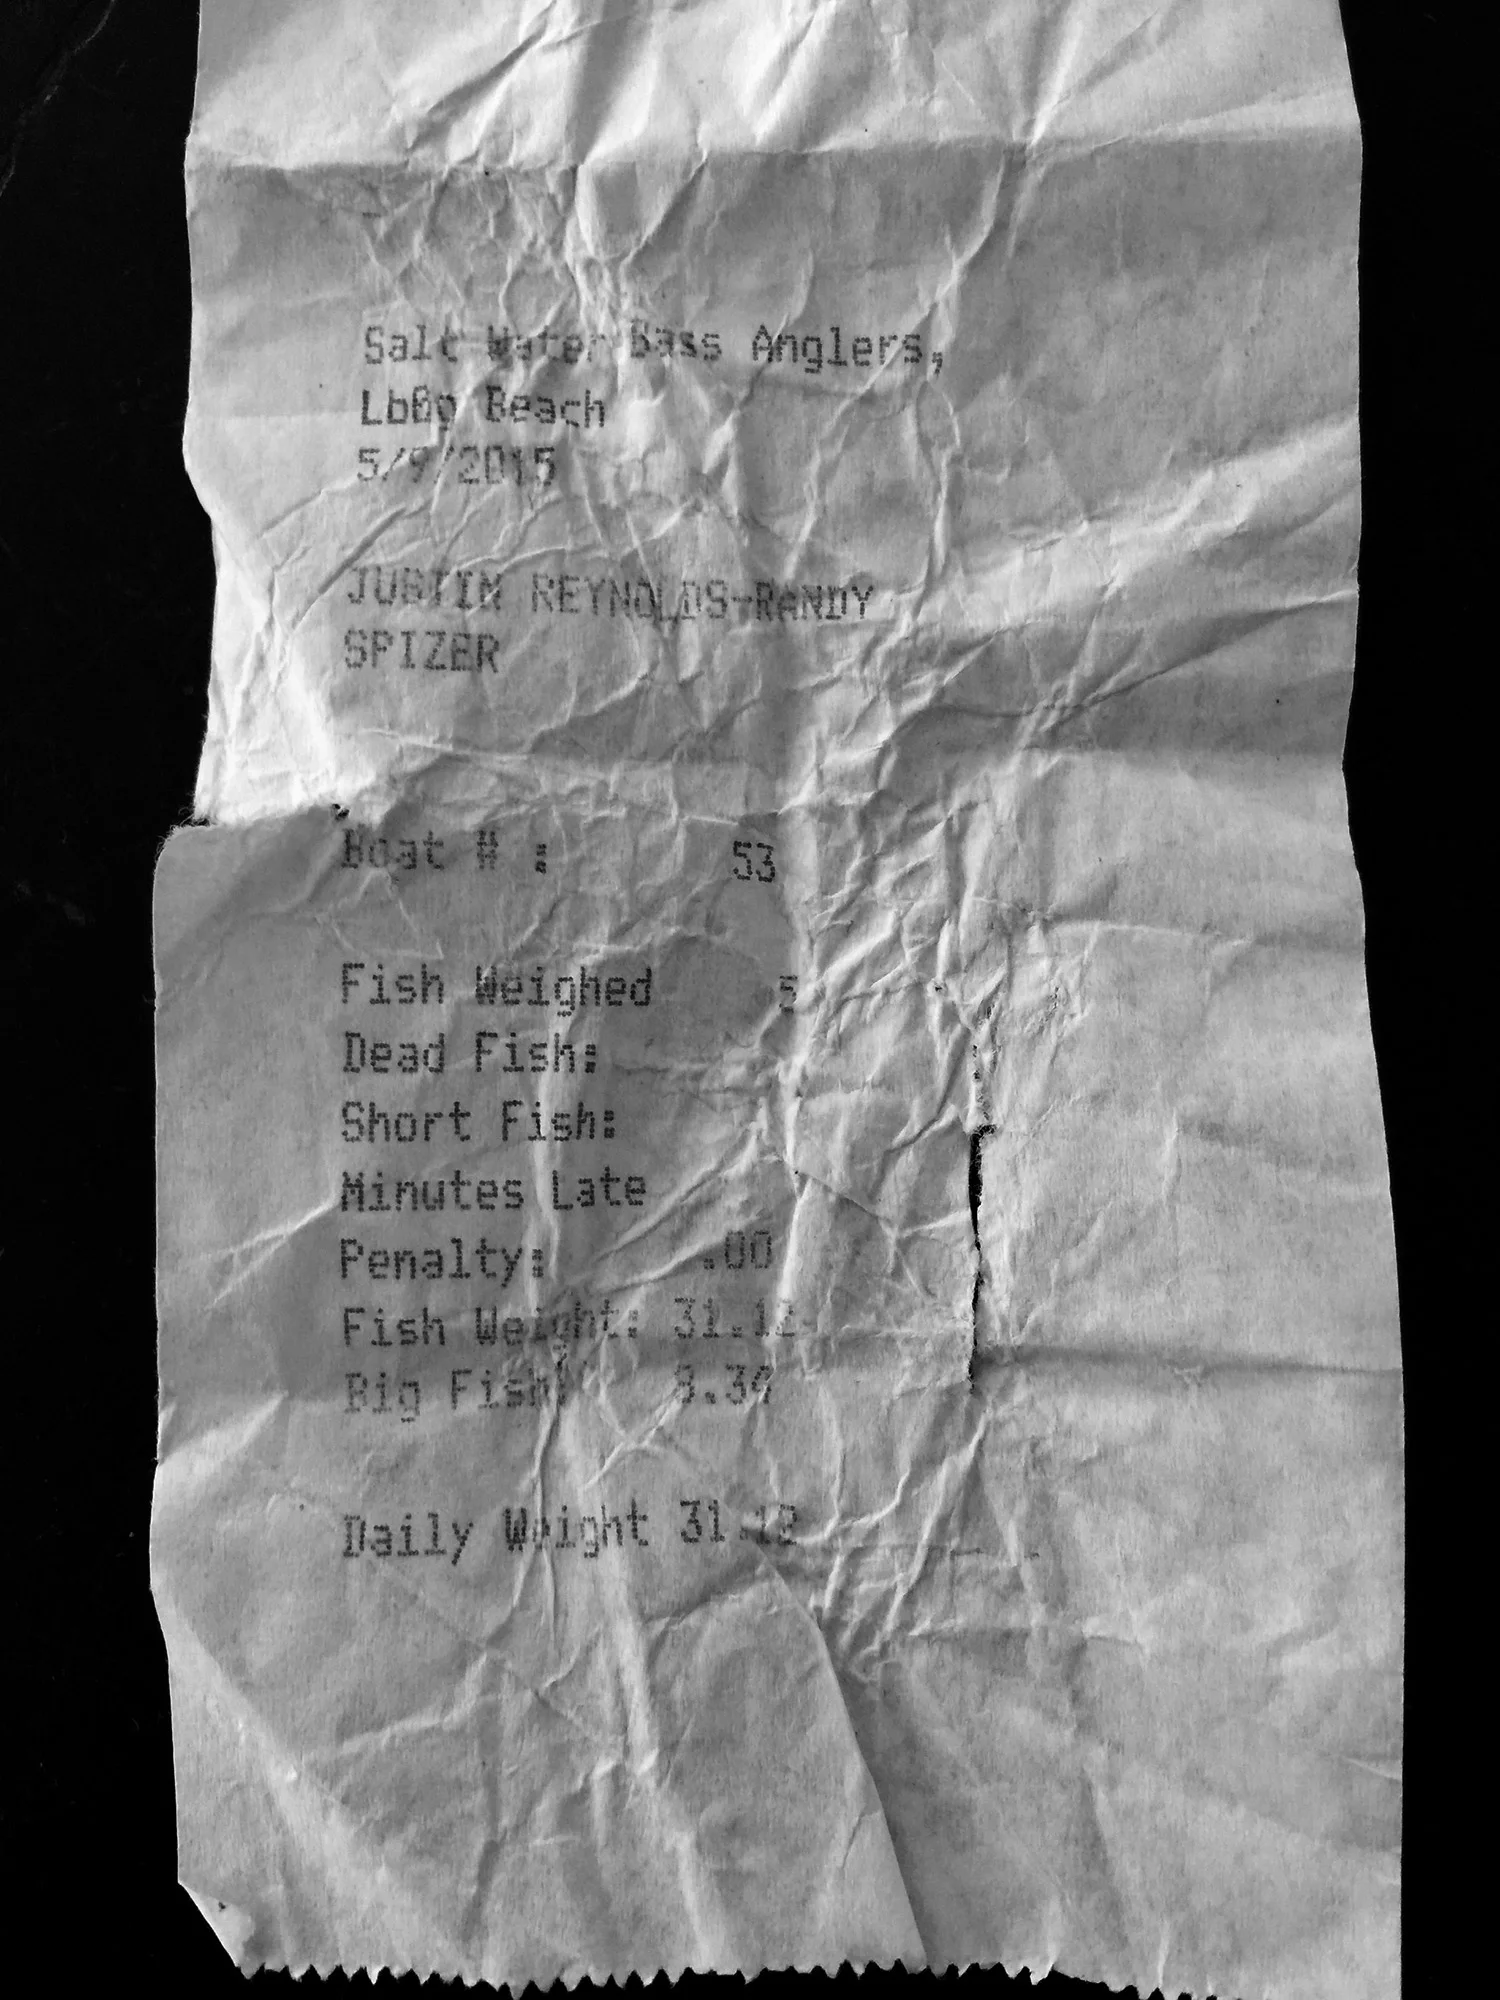 Salt Water Bass Anglers,
Beach
5/9/2015
JUSTIN REYNOLDS-RANDY
SPIZER
Boat # : 53
Fish Weighed 5
Dead Fish:
Short Fish:
Minutes Late
Penalty: .00
Fish Weight: 31.12
Big Fish:
Daily Weight 31.12